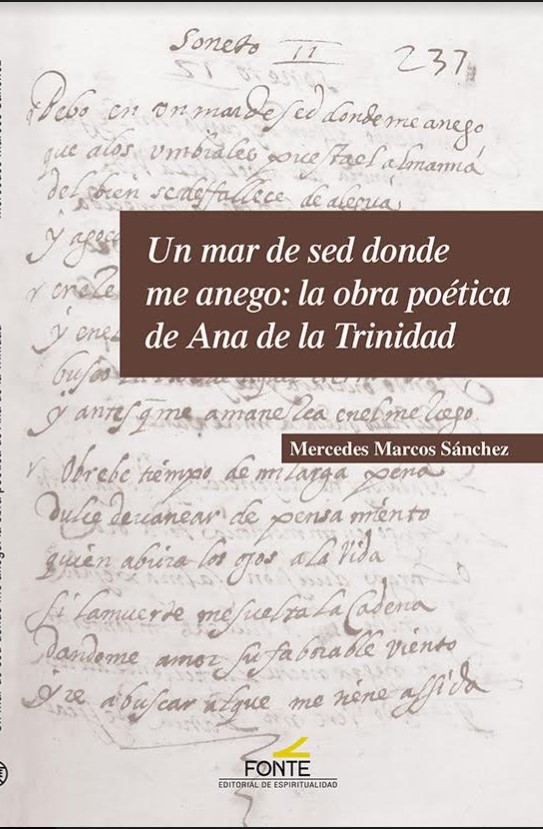 Soneto 11
237
Bebo en un mar de sed donde me anego
que a los vmbrales puesta el alma mia
del bien se desfallece de alegria
y
y cre
y en el
busco
y antes q me amanesca en el me ciego
O brebe tiempo de mi larga pena
dulce devanear de pensamiento
quien abrira los ojos a la vida
si la muerte me suelta la Cadena
dandome amor su faborable viento
yre a buscar al que me tiene assida
Un mar de sed donde
me anego: la obra poética
de Ana de la Trinidad
Mercedes Marcos Sánchez
FONTE
EDITORIAL DE ESPIRITUALIDAD